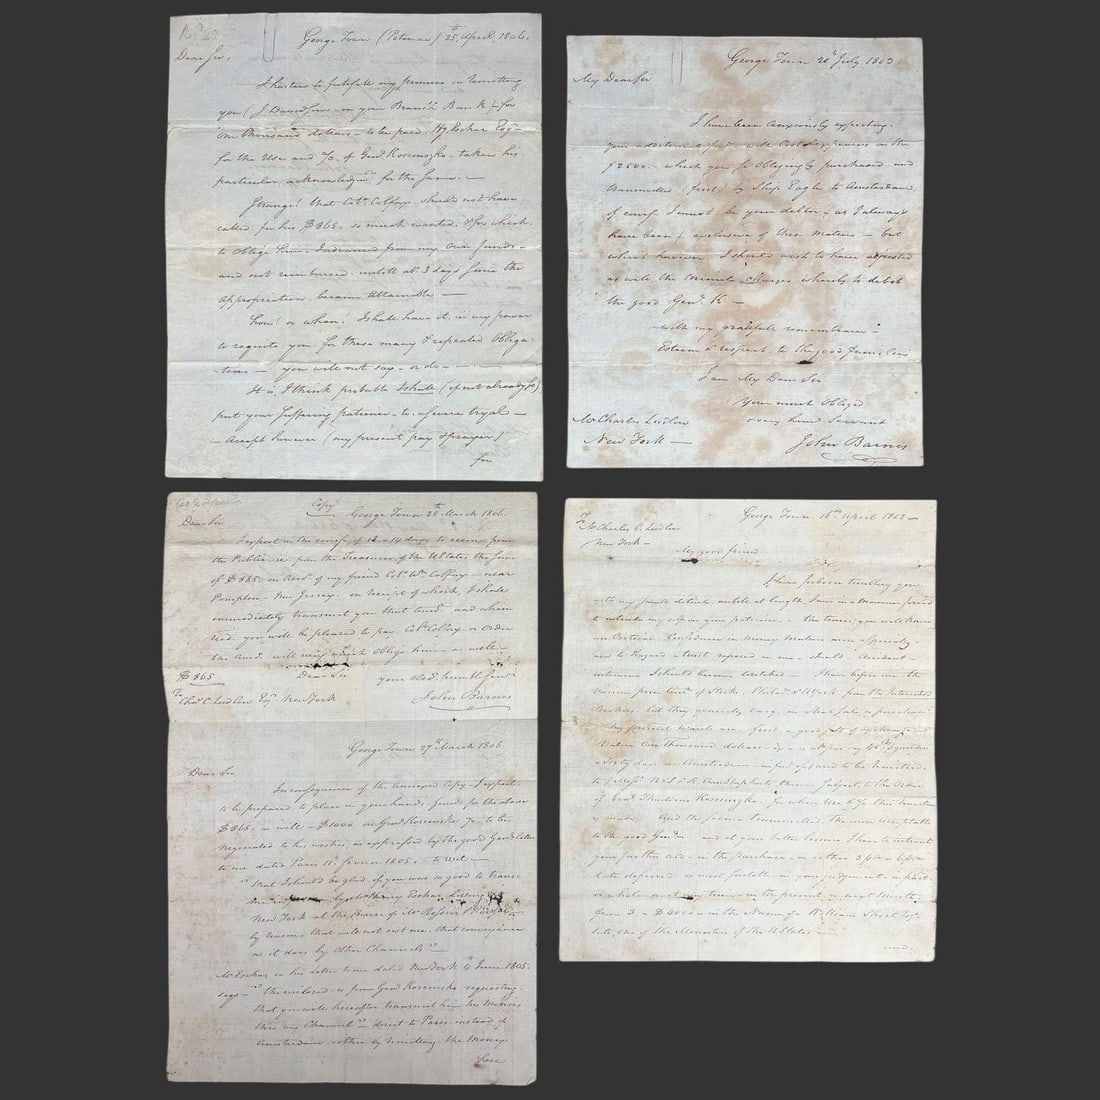 George Town (Potomac) 25th April, 1806.
Dear Sir,
I hasten to fulfill my promise in remitting
you (J Davidson on your Branch Bank) for
one thousand dollars to be paid Hy Eschar Esqr
for the Use and of Genl Kosciusko taken his
particular acknowledgmt for the same. —
Strange! that Colo. Colfax should not have
called for his $865. so much wanted, & for which
to oblige him, I advanced from my own funds —
and not reimbursed untill abt 3 days since the
Appropriation became attainable —
how! or when! I shall have it, in my power
to requite you for these many & repeated Obliga-
tions — you will not say — or do —
It is, I think probable I shall (if not already so)
put your suffering patience to a severe tryal —
Accept however (my present pay & prayers)
for
George Town 20th July 1803
My Dear Sir
I have been anxiously expecting
your advertisement with Cost & expenses on the
$2500. which you so Obligingly purchased and
transmitted (first) by Ship Eagle to Amsterdam,
of course I must be your debtor, as I always
have been & exclusive of these matters — but
which however I should wish to have adjusted
as well the minute charges whereby to debit
the good Genl. K —
with my gratefull remembrance
Esteem & respect, to the good
I am My Dear Sir
Your much Obliged
very hum Servant
John Barnes
Mr Charles Ludlow
New York —
Copy George Town 25th March 1806.
Dear Sir
I expect in the course of 12 a 14 days to receive from
the Public ie from the Treasurer of the U States, the sum
of $865. on Accot. of my friend Colo. Wm Colfax — near
Pompton — New Jersey. on receipt of which, I shall
immediately transmit you that Amot. and when
recd. you will be pleased to pay Colo. Colfax, or order
the Amot. will very much oblige him — as well —
$865 Dear Sir your obed. humble Servt
To
Chas C Ludlow Esqr New York John Barnes
George Town 27th March 1806.
Dear Sir
In consequence of the annexed Copy — I expect
to be prepared to place in your hands, funds for the above
$865. as well — $1000 on Genl Kosciusko to be
negotiated to his wishes, as expressed by the good Genls letter
to me dated Paris 15. fevrier 1805. to wit —
"that I should be glad, if you was so good to trans-
mit my by Mr Henry Eschar living at
New York at the House of
by reason that will not cost me, that conveyance
as it does by other Channels"
Mr Eschar in his Letter to me dated New York 4th June 1805.
says — "the enclosed is from Genl Kosciusko requesting
that you will hereafter transmit him his Monies
thro my Channel — direct to Paris instead of
Amsterdam — either by remitting the Money
here
George Town 16th April 1802 —
To
Mr Charles C. Ludlow
New York —
My good friend
I have forborn troubling you
with my details, untill at length, I am in a manner forced
to intrude my self on your patience. the times, you well know
are Critical. Confidence in Money Matters more Especially
and to hazard a trust reposed in me — should Accident
intervene I should become wretched — I have before me the
Various price currt. of Stock, Philada & N York from the Interested
Brokers, but they generally vary, on real sale, or purchase
My present wants are first a good set of exchange —
Value one thousand dollars — a 40 Cts guilder
a sixty days on Amsterdam and to be remitted
to Messrs N & J & R Van Staphorst, there — Subject to the Order
of Genl. Thadeus Kosciusko, for whose Use & this remittance
is made. And the sooner transmitted the more acceptable
to the good Genl. — and at your better leisure I have to intreat
your further aid — in the purchase — in either 3 pCt or 6 pCts
late deferred; as most suitable in your judgement in part
or whole in the present or next Month
from 3 a $4000 — in the Name of William Short Esqr
late, one of the Ministers of the U States —